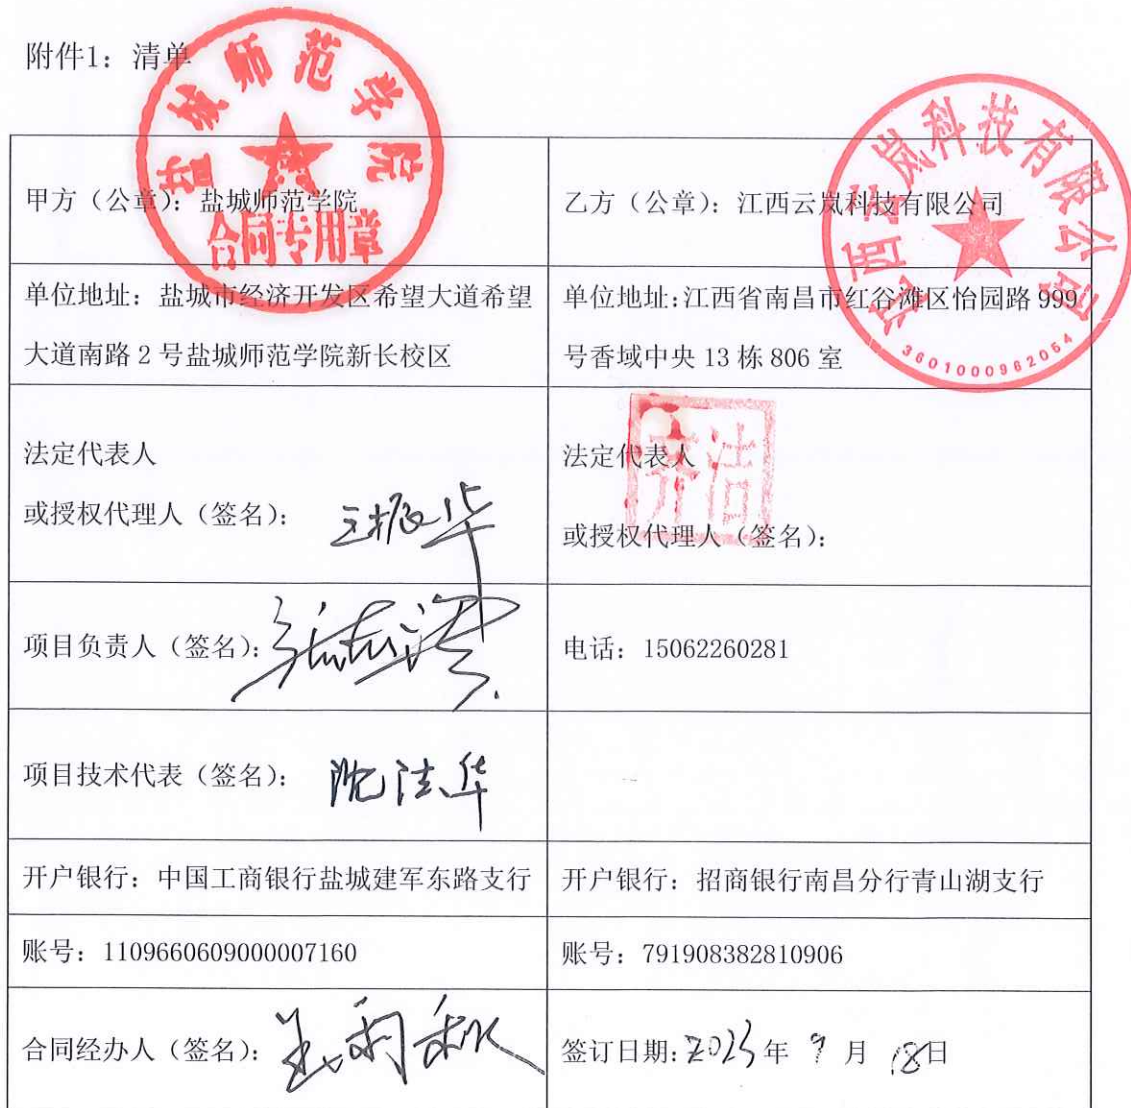 附件1：清单
盐城师范学院
合同专用章
江西云岚科技有限公司
3601000962054
甲方（公章）：盐城师范学院
乙方（公章）：江西云岚科技有限公司
单位地址：盐城市经济开发区希望大道希望
大道南路 2 号盐城师范学院新长校区
单位地址:江西省南昌市红谷滩区怡园路 999
号香域中央 13 栋 806 室
法定代表人
或授权代理人（签名）：王振华
法定代表人
或授权代理人（签名）：
项目负责人（签名）：
电话：15062260281
项目技术代表（签名）：
开户银行：中国工商银行盐城建军东路支行
开户银行：招商银行南昌分行青山湖支行
账号：1109660609000007160
账号：791908382810906
合同经办人（签名）：
签订日期:2023年 9 月 18日